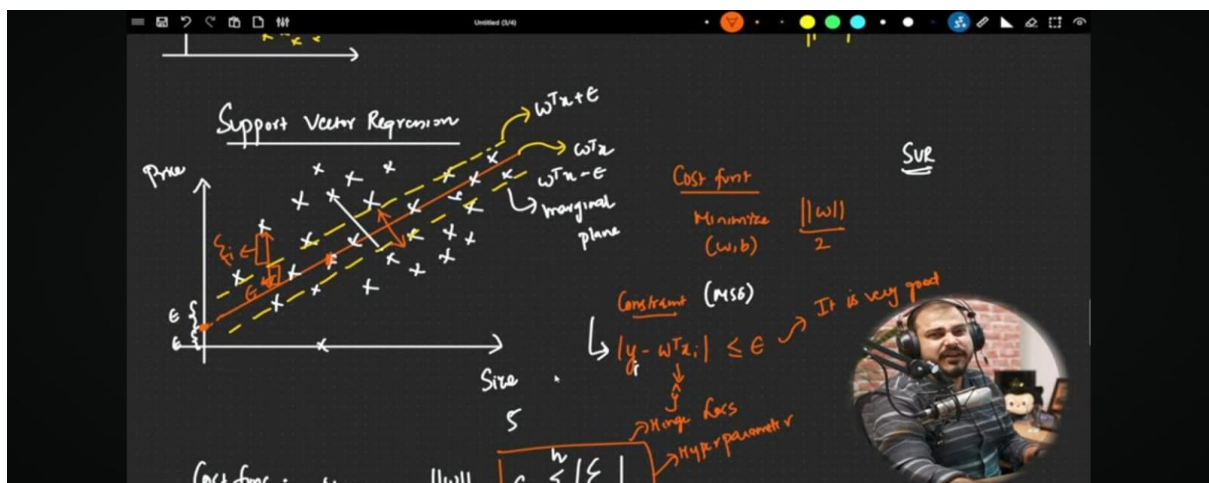 Untitled (3/4)
Support Vector Regression
Price
wᵀx+ε
wᵀx
wᵀx-ε
marginal
plane
ξi
ε
ε
ε
Size
5
SVR
Cost funt
Minimize
(w,b)
||w||
2
Constraint (MSE)
|yi - wᵀxi| ≤ ε
It is very good
ŷ
Hinge Loss
Hyperparameter
Cost func
||w||